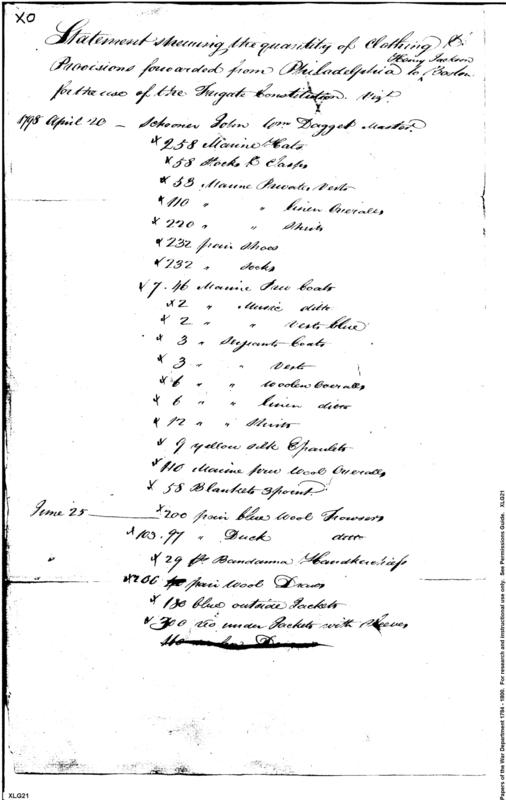 XO
Statement shewing the quantity of Clothing &
Henry Jackson
Provisions forwarded from Philadelphia to Boston
for the use of the Frigate Constitution. Vizt.
1798 April 20 — Schooner John Wm Dagget Master.
x 258 Marine Hats
x 58 Stocks & Clasps
x 53 Marine Privates Vests
x 110 " " linen Overalls
x 220 " " Shirts
x 232 pair Shoes
x 232 " Socks
x 7.46 Marine Coats
x 2 " Music ditto
x 2 " " Vests blue
x 3 " Serjeants Coats
x 3 " " Vests
x 6 " " Woolen Overalls
x 6 " " linen ditto
x 12 " " Shirts
x 9 yellow silk Epaulets
x 110 Marine Wool Overalls
x 58 Blankets 3 point
June 25 — x 200 pair blue Wool Trowsers
x 103.97 " Duck ditto
" x 29 Bandanna Handkerchiefs
x 200 pair Wool Draws
x 180 blue outside Jackets
x 300 under Jackets with Sleeves
XLG21
Papers of the War Department 1784 - 1800. For research and instructional use only. See Permissions Guide. XLG21